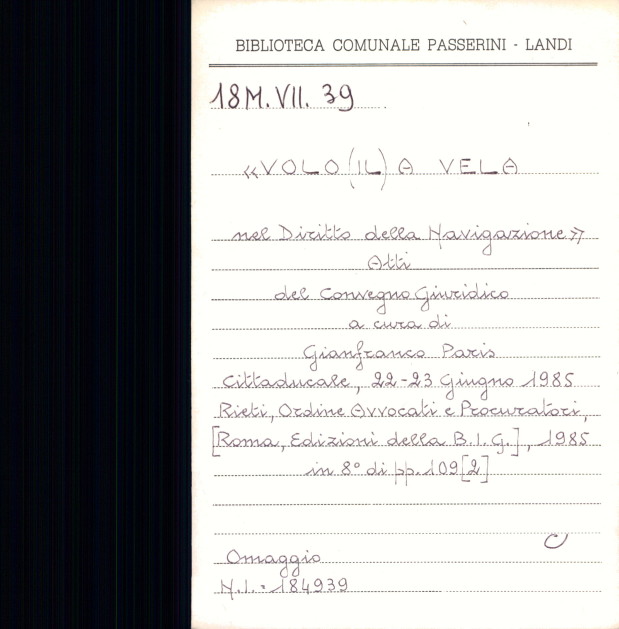 BIBLIOTECA COMUNALE PASSERINI - LANDI
18M.VII. 39
«VOLO (IL) A VELA
nel Diritto della Navigazione»
Atti
del Convegno Giuridico
a cura di
Gianfranco Paris
Cittaducale, 22-23 Giugno 1985
Rieti, Ordine Avvocati e Procuratori,
[Roma, Edizioni della B.I.G.], 1985
in 8° di pp. 109[2]
C
Omaggio
N.I. - 184939